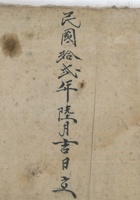 民國拾弍年陸月吉日立